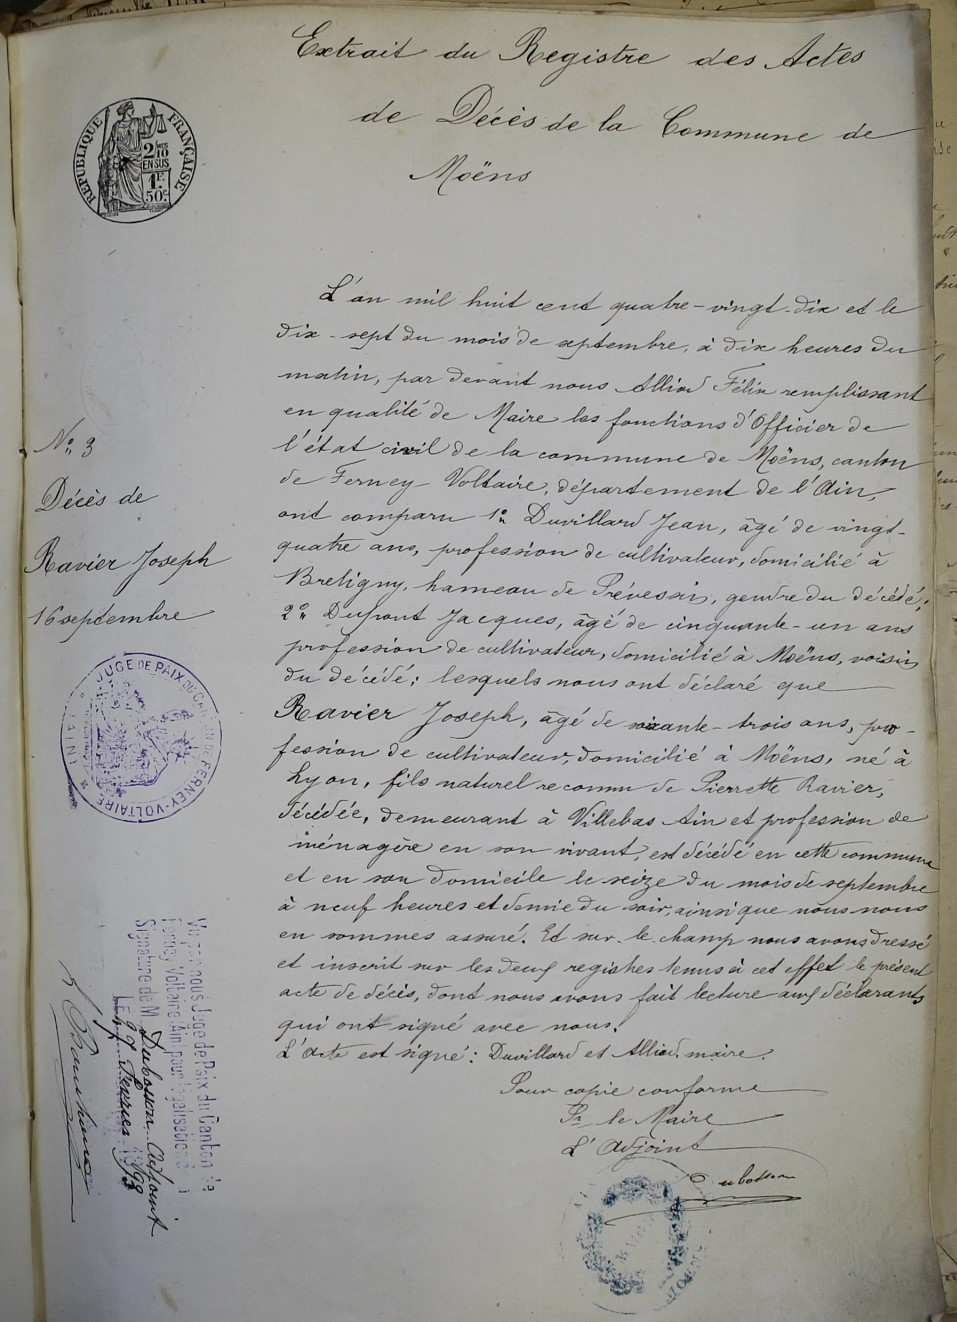 Extrait du Registre des Actes
de Décès de la Commune de
Moëns
RÉPUBLIQUE FRANÇAISE
2/10 EN SUS
1F 50c
L'an mil huit cent quatre-vingt-dix et le
dix-sept du mois de septembre, à dix heures du
matin, par devant nous Alliod Félix remplissant
en qualité de Maire les fonctions d'Officier de
l'état civil de la commune de Moëns, canton
de Ferney-Voltaire, département de l'Ain,
ont comparu 1o Duvillard Jean, âgé de vingt-
quatre ans, profession de cultivateur, domicilié à
Bretigny, hameau de Prévessin, gendre du décédé;
2o Dupont Jacques, âgé de cinquante-un ans
profession de cultivateur, domicilié à Moëns, voisin
du décédé; lesquels nous ont déclaré que
Ravier Joseph, âgé de soixante-trois ans, pro-
fession de cultivateur, domicilié à Moëns, né à
Lyon, fils naturel reconnu de Pierrette Ravier,
décédée, demeurant à Villebas Ain et profession de
ménagère en son vivant, est décédé en cette commune
et en son domicile le seize du mois de septembre
à neuf heures et demie du soir, ainsi que nous nous
en sommes assuré. Et sur-le-champ nous avons dressé
et inscrit sur les deux registres tenus à cet effet le présent
acte de décès, dont nous avons fait lecture aux déclarants
qui ont signé avec nous.
L'acte est signé: Duvillard et Alliod, maire.
Pour copie conforme
Pr le Maire
L'Adjoint
Dubosson
No 3
Décès de
Ravier Joseph
16 septembre
JUGE DE PAIX DU CANTON DE FERNEY-VOLTAIRE (AIN)
Vu par nous Juge de Paix du Canton de
Ferney-Voltaire (Ain) pour légalisation de la
Signature de M Dubosson Adjoint
LE Février
MAIRIE MOËNS